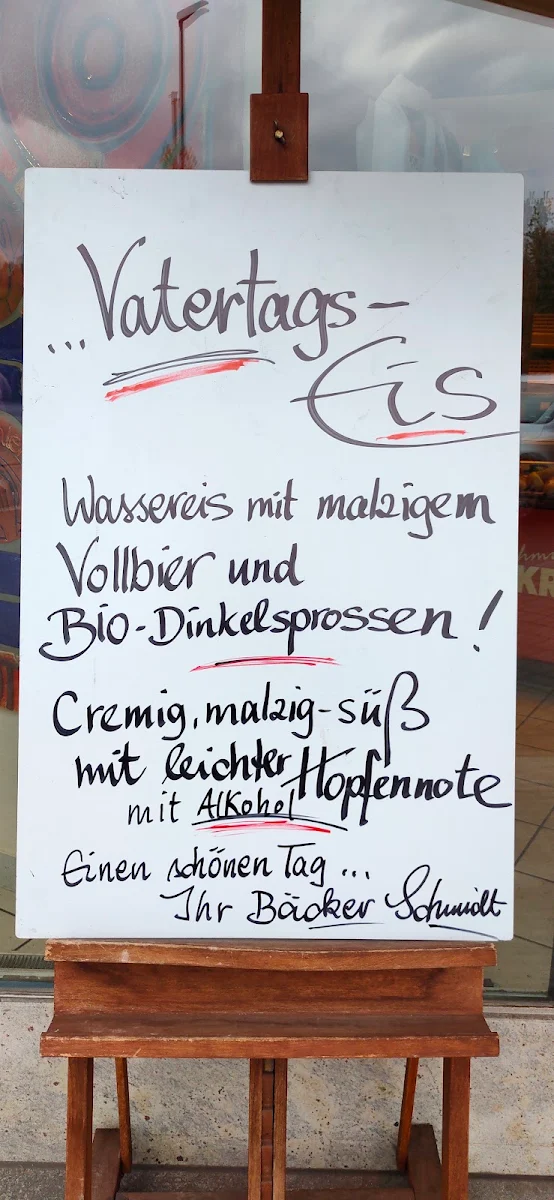 ...Vatertags-
Eis
Wassereis mit malzigem
Vollbier und
Bio-Dinkelsprossen!
Cremig, malzig-süß
mit leichter Hopfennote
mit Alkohol
Einen schönen Tag...
Ihr Bäcker Schmidt